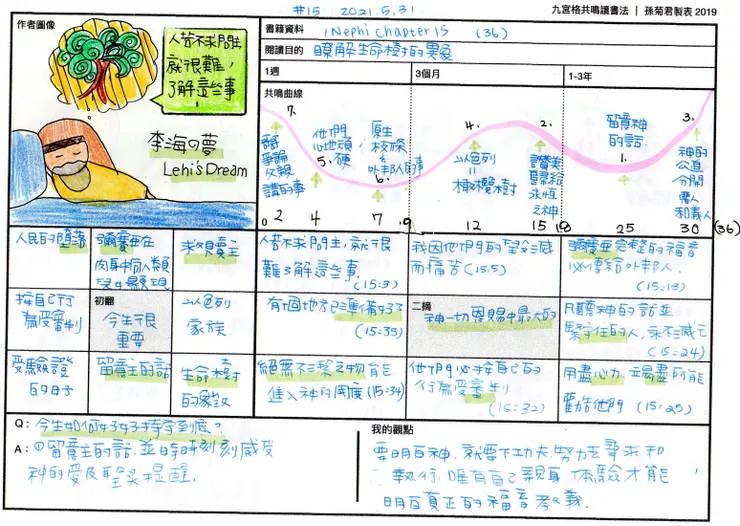 #15 2021.5.31
九宮格共鳴讀書法 | 孫菊君製表 2019
作者圖像
人若不求問主,
就很難,
了解這些事
!
李海の夢
Lehi's Dream
書籍資料 1Nephi chapter 15 (36)
閱讀目的 瞭解生命樹的異象
1週
3個月
1-3年
共鳴曲線
7.
爭論
父親
講的事
他們
心地頑
5. 硬
原生
枝條
&
外邦人的事
6.
4.
以色列
=
橄欖樹
2.
讚美
歸給
永恆
之神
留意神
的話
1.
3.
神的
公道
分開
惡人
和義人
0 2 4 7 9 12 15 18 25 30 (36)
人民的墮落
彌賽亞在
肉身中向人類
顯現
救贖主
按自己行
為受審判
初翻
今生很
重要
以色列
家族
受驗證
的日子
留意主的話
生命樹
的象徵
人若不求問主,就很
難了解這些事.
(15:3)
我因他們的堅硬
而痛苦 (15:5)
彌賽亞完整的福音
必傳給外邦人.
(15:13)
有個地方已準備好了
(15:35)
二摘
神一切恩賜中最大的
凡聽神的話並
緊守住的人,永不滅亡
(15:24)
絕無不潔之物能
進入神的國度 (15:34)
他們必按自己的
行為受審判
(15:32)
用盡心力、竭盡所能
勸告他們 (15:25)
Q: 今生如何好好持守到底?
A: ①留意主的話,並時時刻刻感受
神的愛及聖靈提醒.
我的觀點
要明白神,就要下功夫,努力去尋求和
執行,唯有自己親身體驗才能
明白真正的福音教義.